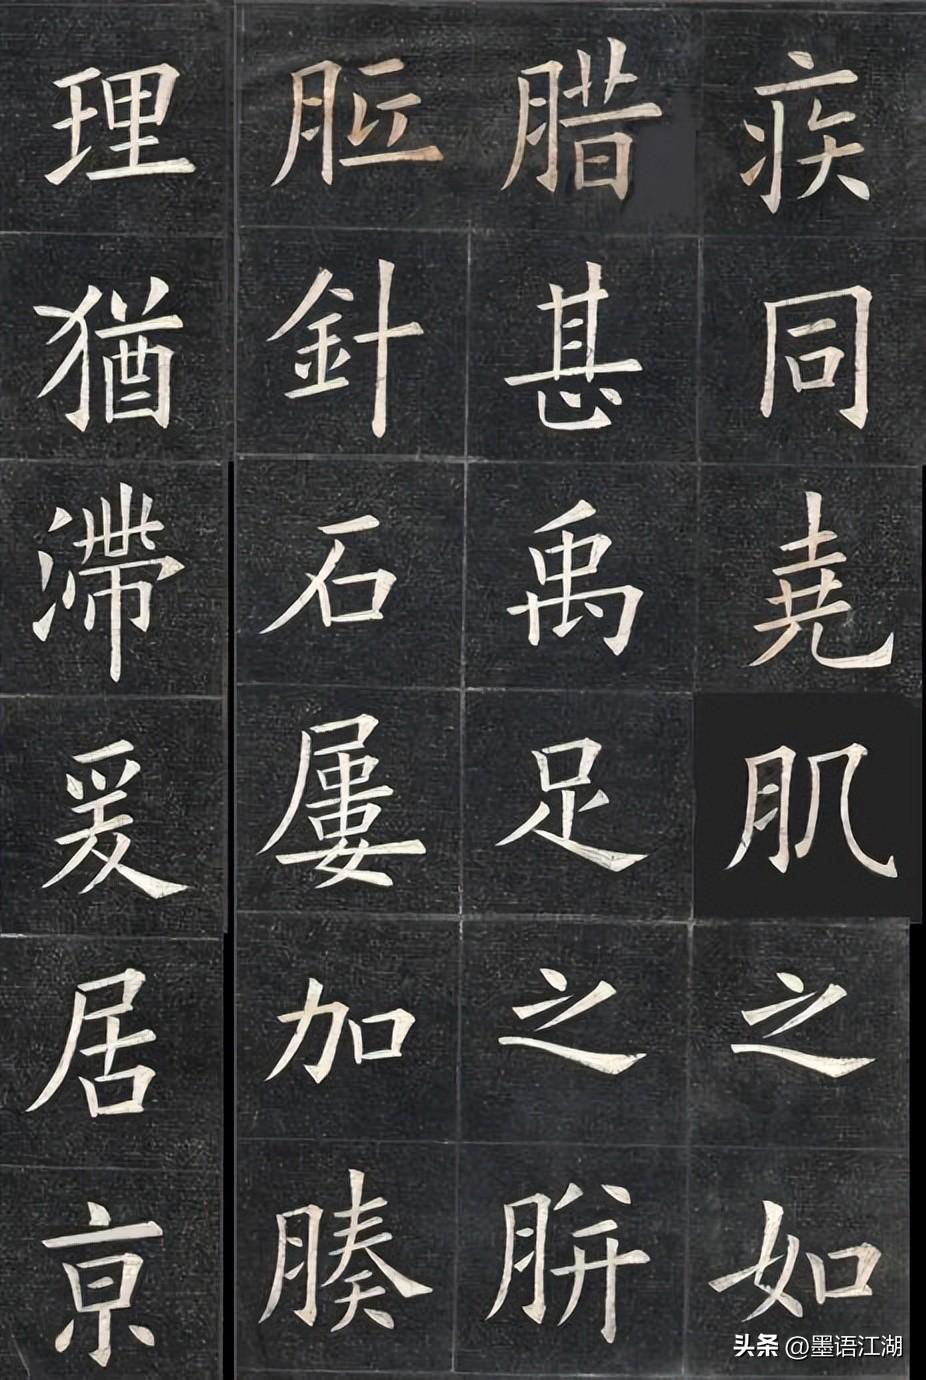 疾同堯肌之如
腊甚禹足之胼
胝針石屢加腠
理猶滯爰居京
头条 @墨语江湖